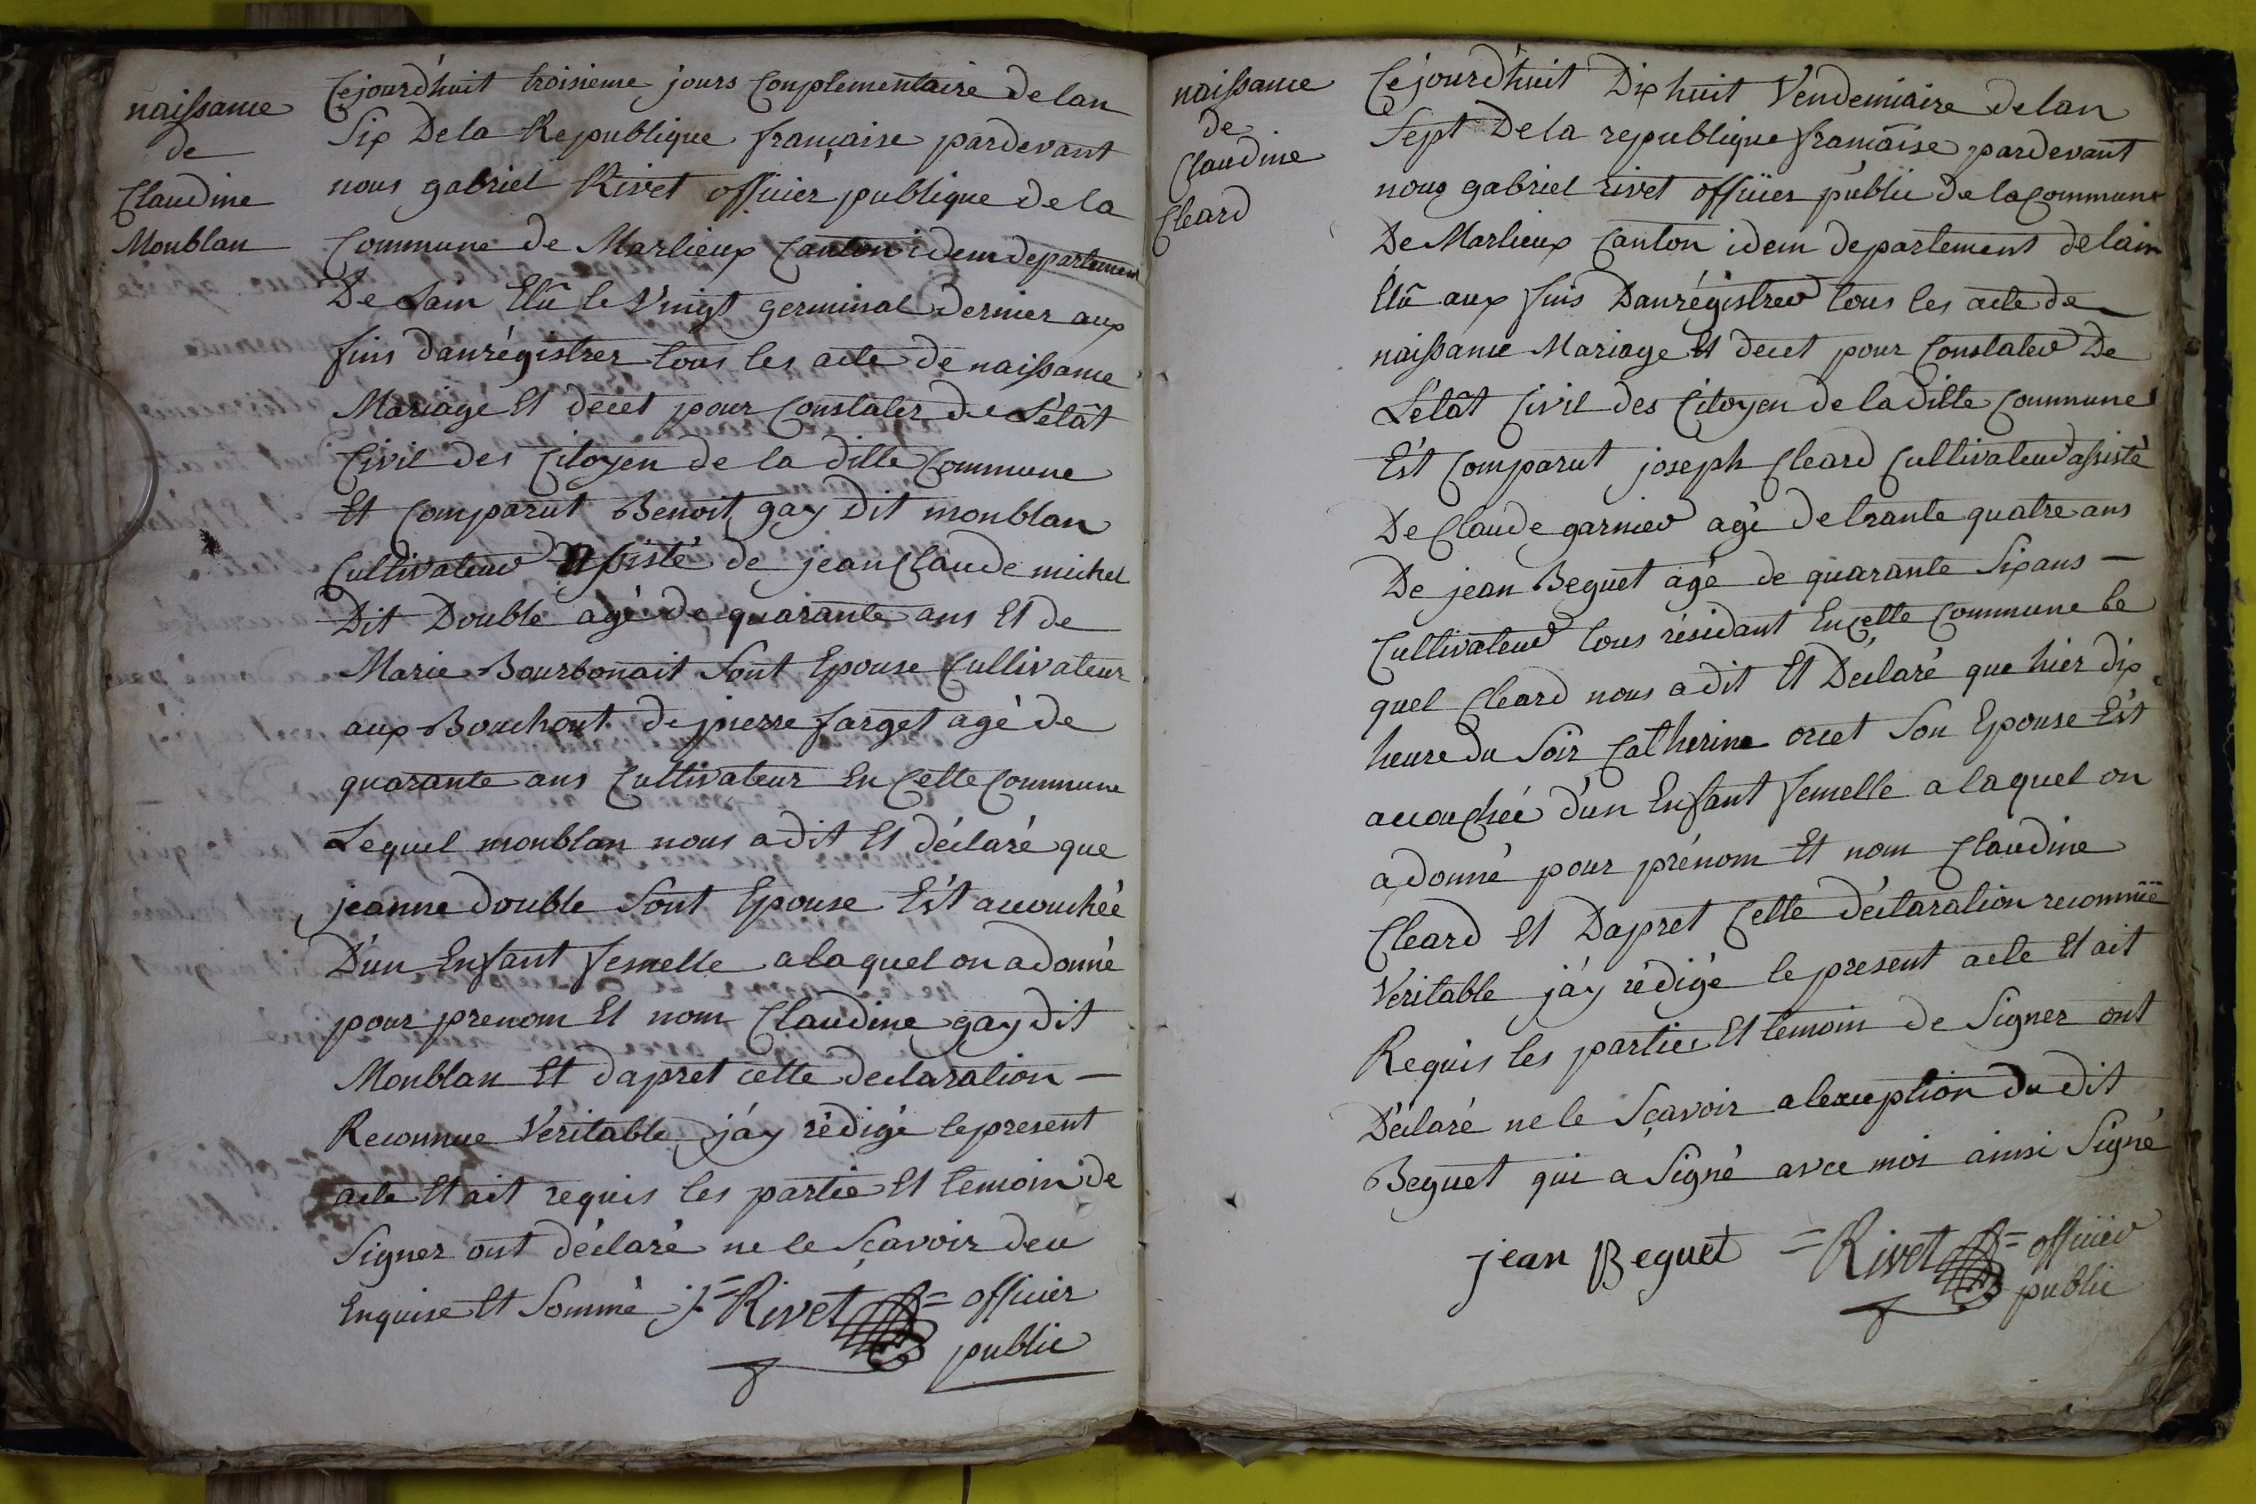 naissance
de
Claudine
Monblan
Cejourd'huit troisieme jours Complementaire de lan
Six De la Republique francaise pardevant
nous gabriel Rivet officier publique de la
Commune de Marlieux Canton idem departement
De Lain Elû le Vingt germinal dernier aux
fins danrégistrer tous les acte de naissance
Mariage Et décet pour Constater de L'etât
Civil des Citoyen de la ditte Commune
Et Comparut Benoit gay Dit monblan
Cultivateur Assisté de jean Claude michel
Dit Double agé de quarante ans Et de
Marie Bourbonait Sont Epouse Cultivateur
aux Bouchont de pierre farget agé de
quarante ans Cultivateur En Cette Commune
Lequel monblan nous a dit Et déclaré que
jeanne double Sont Epouse Est accouchéé
D'un Enfant femelle a laquel on a donné
pour prenom Et nom Claudine gay dit
Monblan Et dapret cette declaration
Reconnue Véritable j'ay rédigé le present
acte Et ait requis les partie Et temoin de
Signer ont déclaré ne le Sçavoir deu
Enquise Et Sommé j. = Rivet = officier
public
naissance
de
Claudine
Cleard
Cejourd'huit Dix huit Vendemiaire de lan
Sept De la republique francaise pardevant
nous gabriel rivet officier public de la Commune
De Marlieux Canton idem departement de lain
Elû aux fins Danrégistrer tous les acte de
naissance Mariage Et decet pour Constater De
L'etât Civil des Citoyen de la ditte Commune
Est Comparut joseph Cleard Cultivateur assisté
De Claude garnier agé de trante quatre ans
De jean Beguet agé de quarante Six ans
Cultivateur tous résidant En cette Commune le
quel Cleard nous a dit Et Déclaré que hier dix
heure du Soir Catherine orcet Son Epouse Est
accouchéé d'un Enfant femelle a laquel on
a donné pour prénom Et nom Claudine
Cleard Et Dapret Cette déclaration reconnüe
Veritable j'ay rédigé le present acte Et ait
Requis les partie Et temoin de Signer ont
Déclaré ne le Sçavoir a lexception du dit
Beguet qui a Signé avec moi ainsi Signé
jean Beguet = Rivet = officier
public